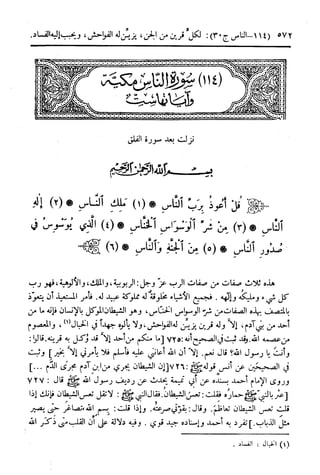 ٥٧٢ (١١٤-الناس ج٣٠): لكل قرين من الجن، يزين له الفواحش، ويحبب إليه الفساد.
(١١٤) سُورَةُ النَّاسِ مَكِّيَّة
وَآيَاتُهَا سِتّ
نزلت بعد سورة الفلق
بِسْمِ اللهِ الرَّحْمٰنِ الرَّحِيمِ
قُلْ أَعُوذُ بِرَبِّ النَّاسِ * (١) مَلِكِ النَّاسِ * (٢) إِلَهِ
النَّاسِ * (٣) مِن شَرِّ الْوَسْوَاسِ الْخَنَّاسِ * (٤) الَّذِي يُوَسْوِسُ فِي
صُدُورِ النَّاسِ * (٥) مِنَ الْجِنَّةِ وَالنَّاسِ * (٦)
هذه ثلاث صفات من صفات الرب عزّ وجل: الربوبية، والملك، والألوهية، فهو رب
كل شيء ومليكه وإلهه. فجميع الأشياء مخلوقة له مملوكة عبيد له. فأمر المستعيذ أن يتعوّذ
بالمتصف بهذه الصفات من شرّ الوسواس الخنّاس، وهو الشيطان الموكل بالإنسان فإنه ما من
أحد من بني آدم، إلاّ وله قرين يزيّن له الفواحش، ولا يألوه جهداً في الخبال(١)، والمعصوم
من عصمه الله. وقد ثبت في الصحيح أنه: ٧٢٥ [ما منكم من أحد إلا قد وُكل به قرينه. قالوا:
وأنت يا رسول الله؟ قال نعم. إلا أن الله أعانني عليه فأسلم فلا يأمرني إلاّ بخير] وثبت
في الصحيحين عن أنس قوله ﷺ: ٧٢٦ [إن الشيطان يجري من ابن آدم مجرى الدم ...]
وروى الإمام أحمد بسنده عن أبي تميمة يحدث عن رديف رسول الله ﷺ قال: ٧٢٧
[عثر بالنبي ﷺ حماره فقلت: تعس الشيطان. فقال النبي ﷺ: لا تقل تعس الشيطان فإنك إذا
قلت تعس الشيطان تعاظم. وقال: بقوتي صرعته. وإذا قلت: بسم الله تصاغر حتى يصير
مثل الذباب.] تفرد به أحمد وإسناده جيد قوي. وفيه دلالة على أن القلب متى ذكر الله
(١) الخبال: الفساد.